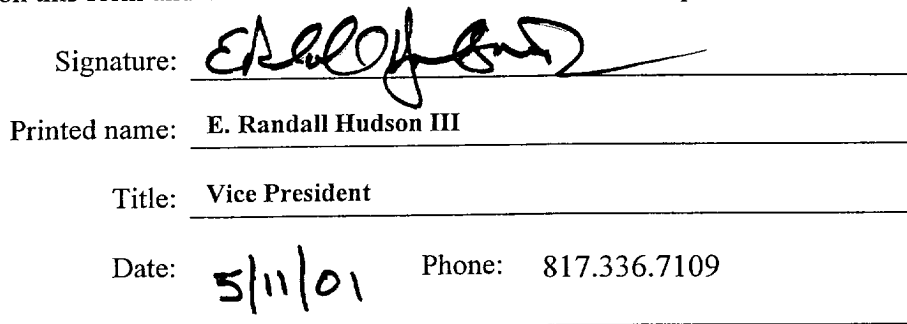 on this form and
Signature:
Printed name: E. Randall Hudson III
Title: Vice President
Date: 5/11/01 Phone: 817.336.7109